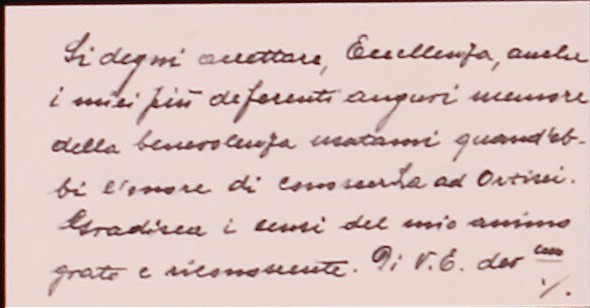 Si degni accettare, Eccellenza, anche
i miei più deferenti auguri memore
della benevolenza usatami quand'eb-
bi l'onore di conoscerLa ad Ortisei.
Gradisca i sensi del mio animo
grato e riconoscente. Di V.E. dev